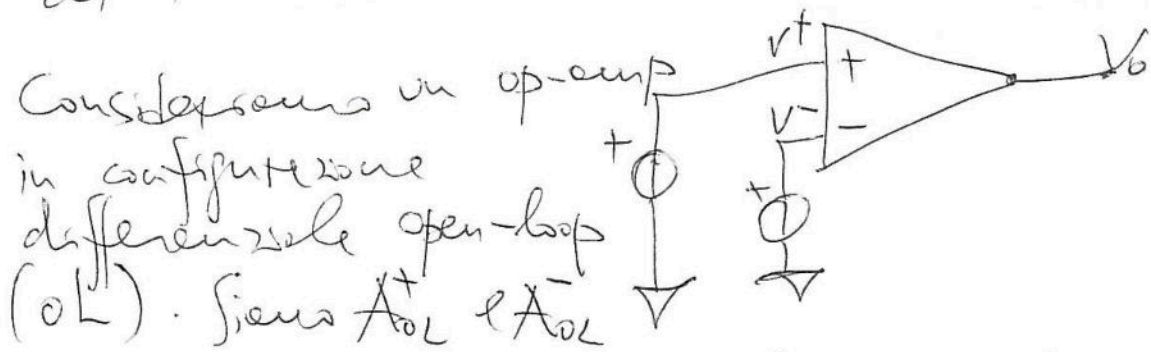 Consideriamo un op-amp
in configurazione
differenziale open-loop
(OL). Siano A⁺OL e A⁻OL
v⁺
+
Vo
v⁻
−
+
+